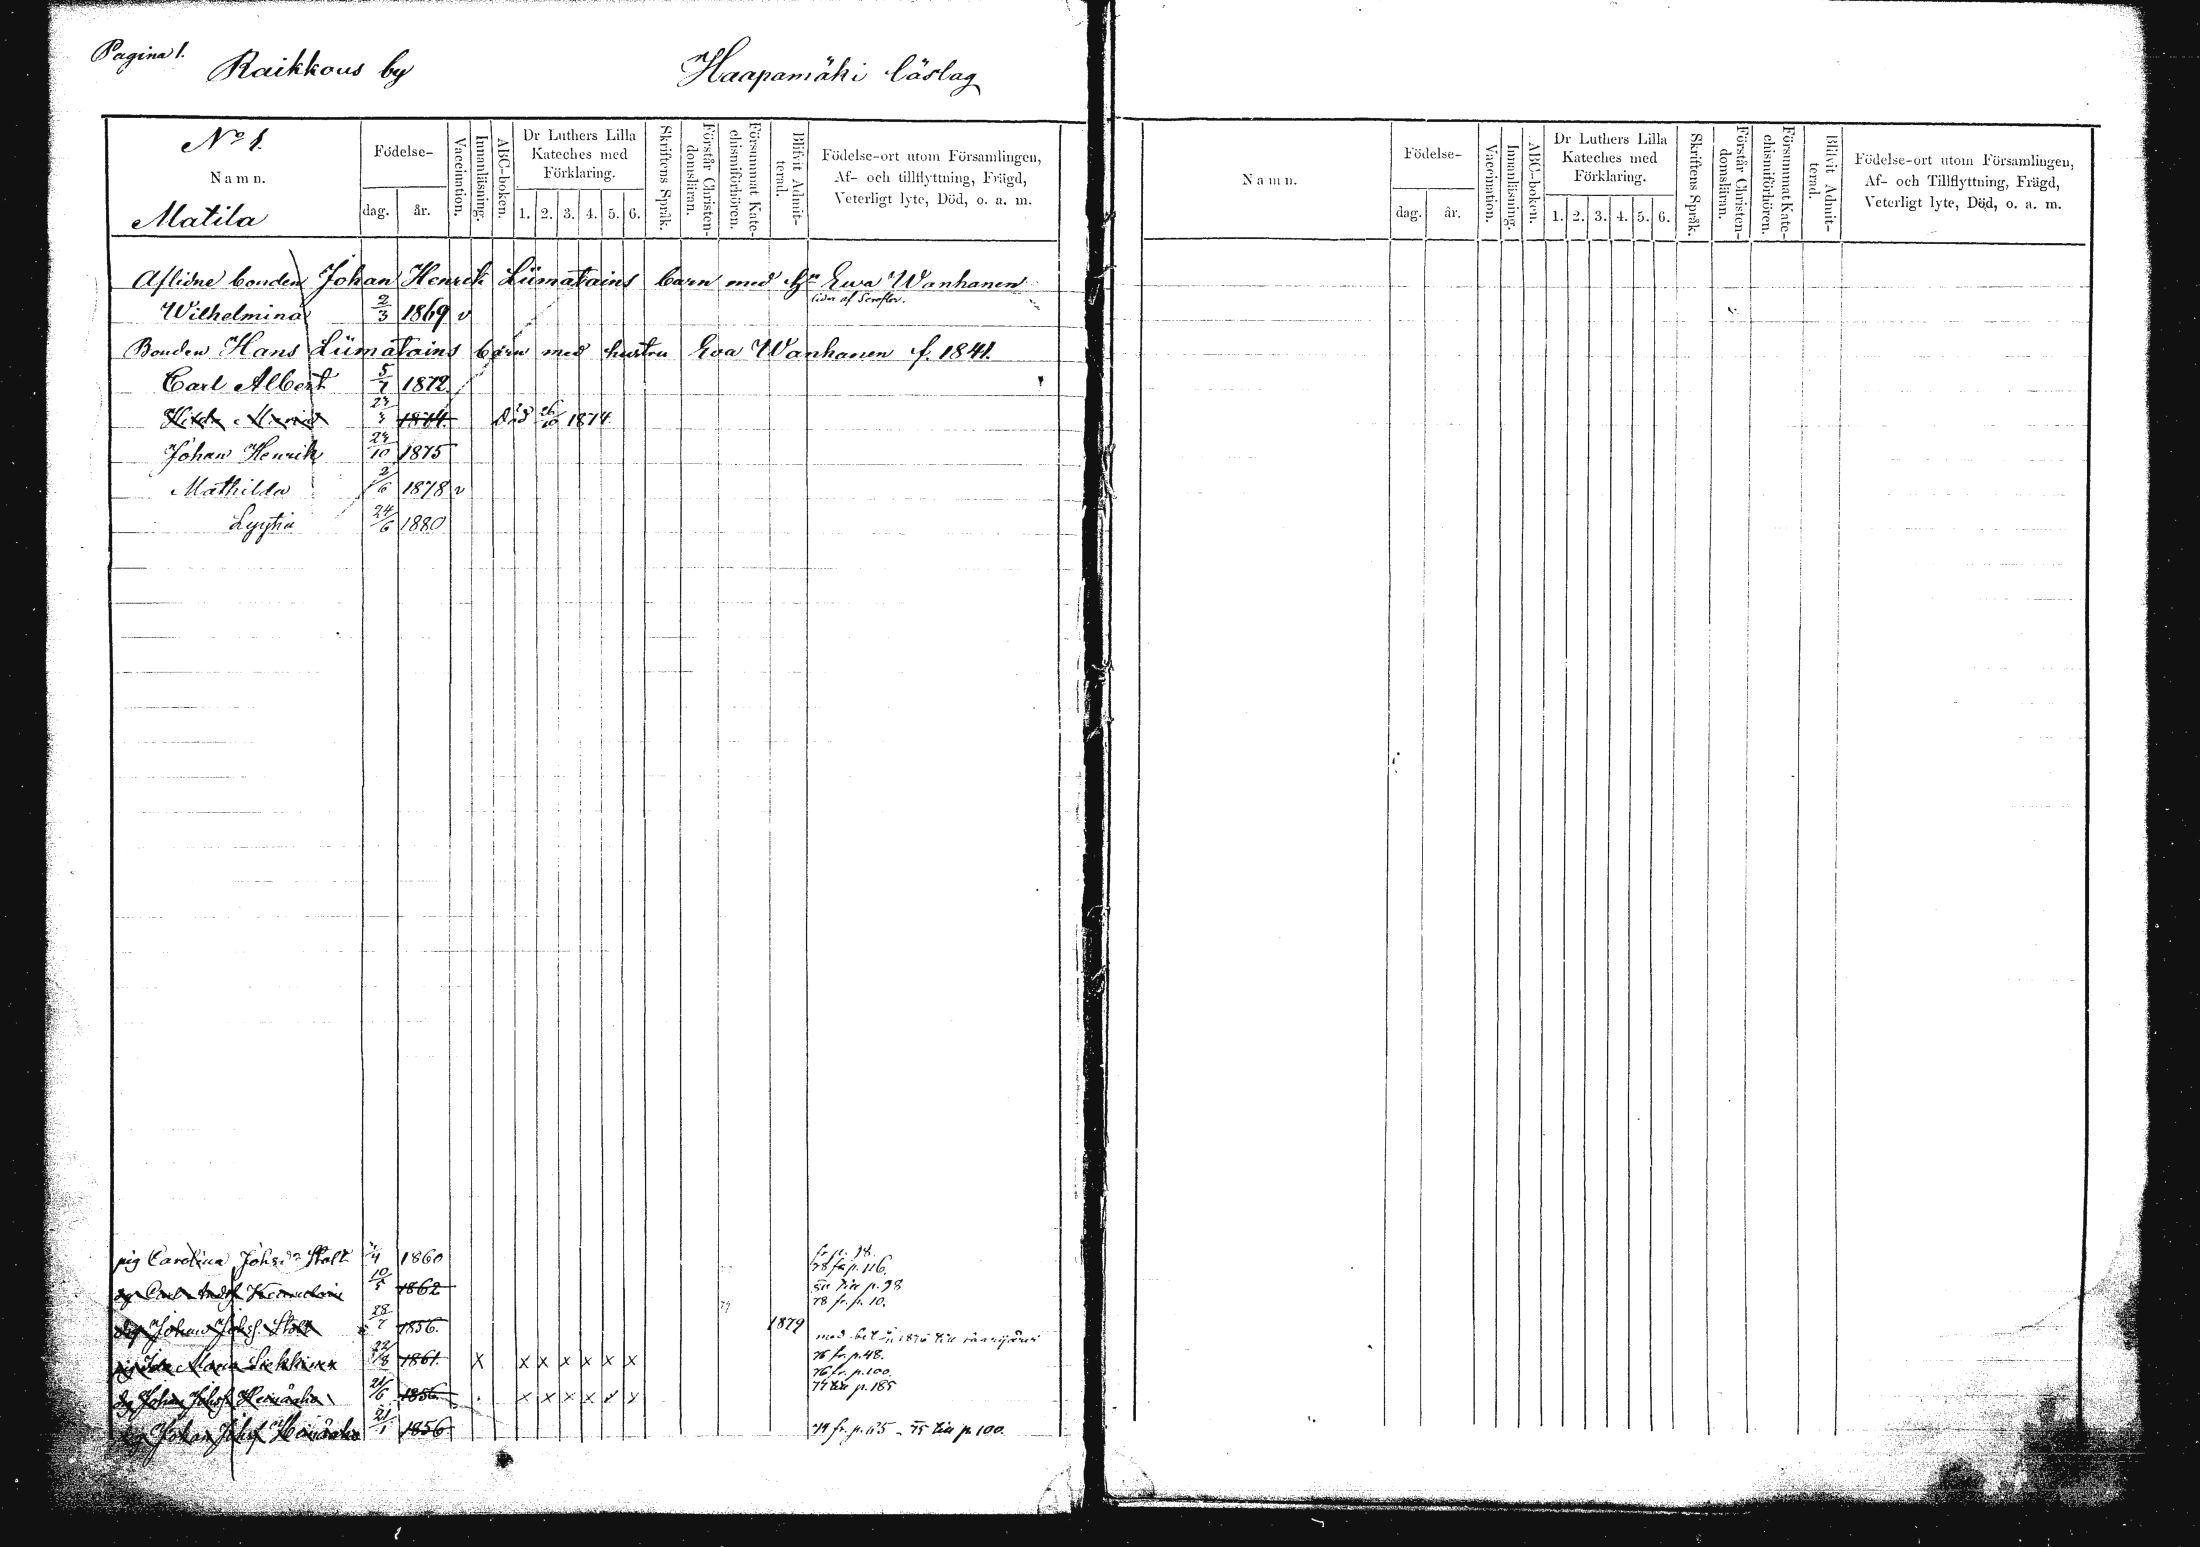 Pagina 1.
Raikkous by
Haapamäki läslag
No 1.
Namn.
Matila
Födelse-
dag. år.
Vaccination.
Innanläsning.
ABC-boken.
Dr Luthers Lilla
Kateches med
Förklaring.
1. 2. 3. 4. 5. 6.
Skriftens Språk.
Förstår Christen-
domsläran.
Försummat Kate-
chismiförhören.
Blifvit Admit-
terad.
Födelse-ort utom Församlingen,
Af- och tillflyttning, Frägd,
Veterligt lyte, Död, o. a. m.
Aflidne bonden Johan Henrik Liimatains barn med Ewa Wanhanen
lider af
Wilhelmina 2/3 1869 v
Bonden Hans Liimatains barn med hustru Eva Wanhanen f. 1841.
Carl Albert 5/7 1872
1874. död 26/10 1874
Johan Henrik 24/10 1875
Mathilda 2/6 1878 v
24/6 1880
pig Carolina 1860
fr p. 98.
78 p. 116.
10/5 1862
till p. 98
78 fr. p. 10.
79
Johan 28/7 1856. 1879
med bet 1876 till
Maria 22/8 1861. X X X X X X X
76 fr. p. 48.
76 fr. p. 100.
Johan 21/6 1856. X X X X X X
77 till p. 185
Johan 21/1 1856
74 fr. p. 115 - 75 till p. 100.
Namn.
Födelse-
dag. år.
Vaccination.
Innanläsning.
ABC-boken.
Dr Luthers Lilla
Kateches med
Förklaring.
1. 2. 3. 4. 5. 6.
Skriftens Språk.
Förstår Christen-
domsläran.
Försummat Kate-
chismiförhören.
Blifvit Admit-
terad.
Födelse-ort utom Församlingen,
Af- och Tillflyttning, Frägd,
Veterligt lyte, Död, o. a. m.